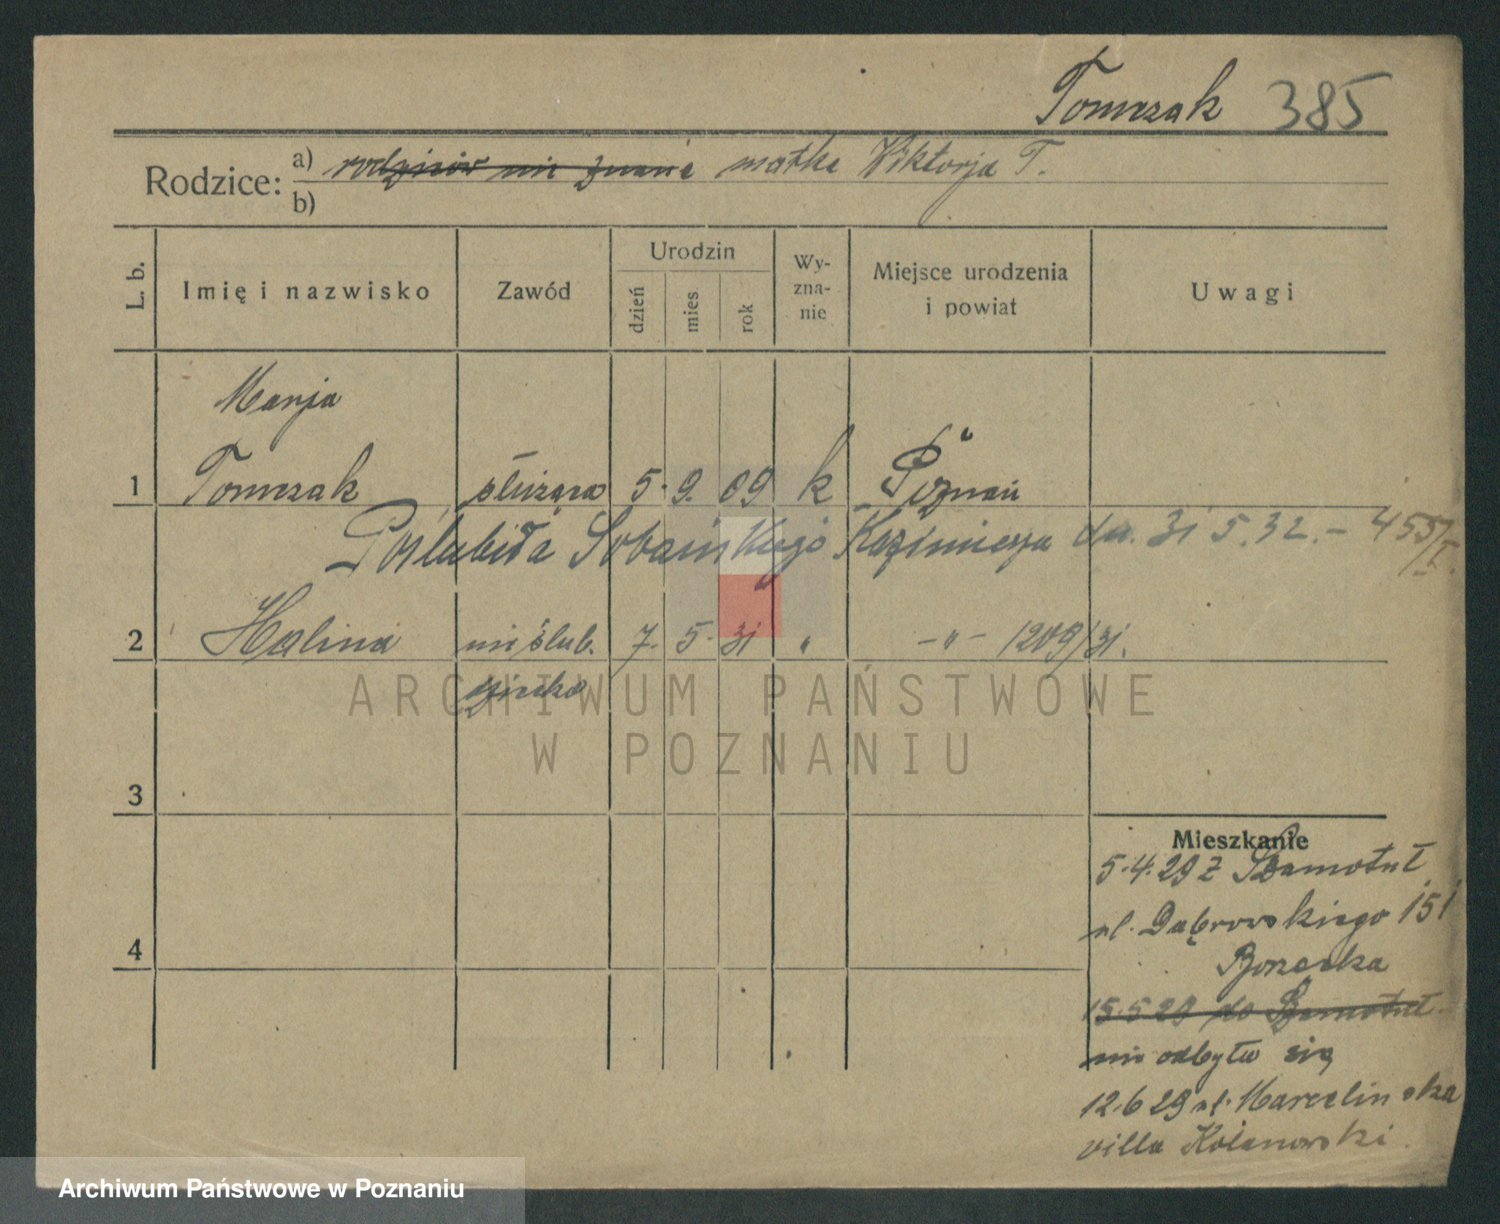 Tomczak 385
Rodzice: a) rodziców nie znane matka Viktorja T.
b)
L. b. Imię i nazwisko Zawód Urodzin dzień mies rok Wy-zna-nie Miejsce urodzenia i powiat Uwagi
Marja
1 Tomczak służąca 5. 9. 09 k Poznań
Poślubiła Sobańskiego Kazimierza dn. 31 5.32. – 455/I.
2 Halina nieślub. 7. 5. 31 " –"– 1209/31.
dziecko
ARCHIWUM PAŃSTWOWE
W POZNANIU
3
Mieszkanie
5.4.29 z Szamotuł
ul. Dąbrowskiego 151
4
15.5.29 do Szamotuł
nie odbyła się
12.6 29 ul. Marcelińska
villa
Archiwum Państwowe w Poznaniu